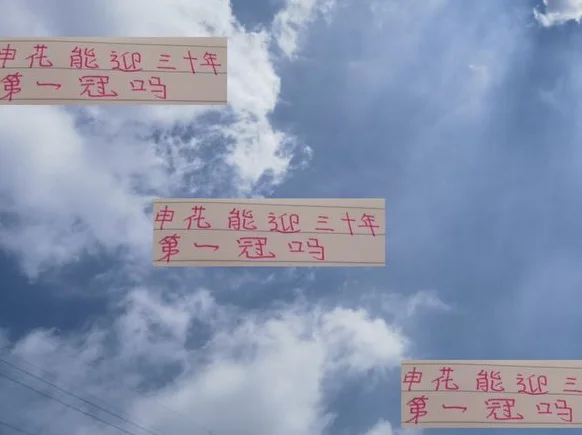 申花能迎三十年
第一冠吗
申花能迎三十年
第一冠吗
申花能迎三
第一冠吗